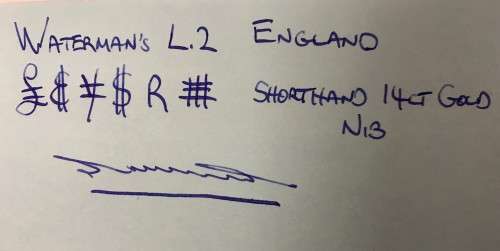 WATERMAN'S L.2 ENGLAND
£ $ ¥ $ R # SHORTHAND 14CT GOLD
NIB